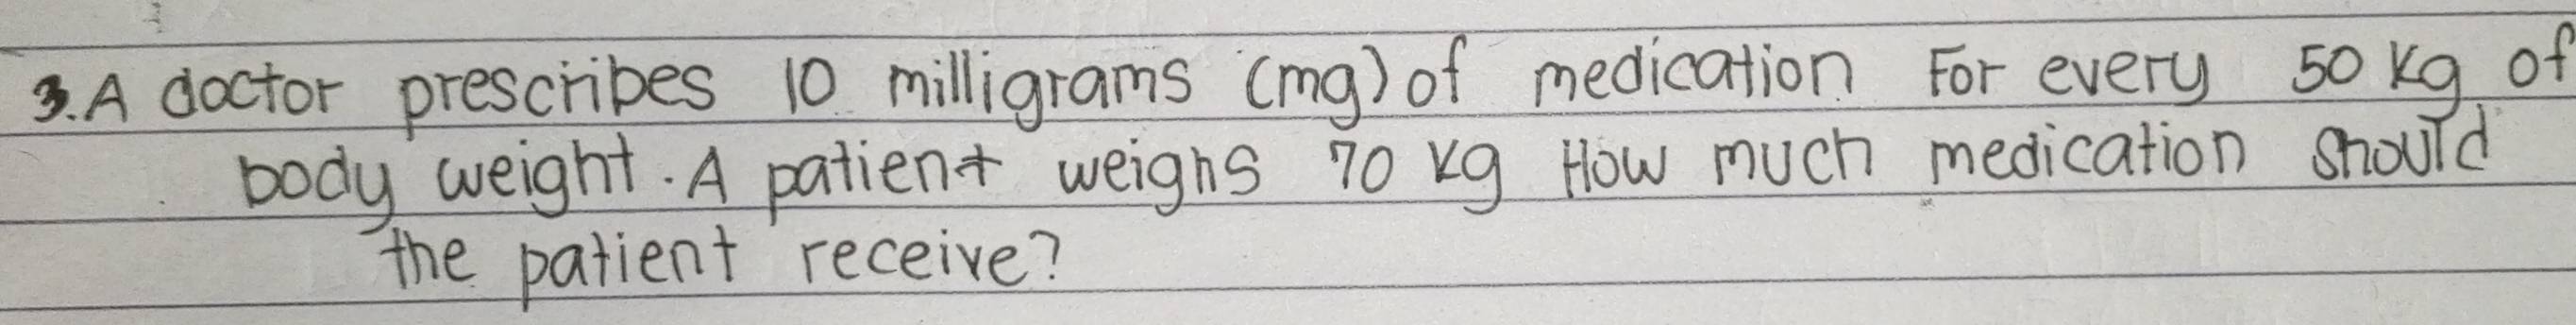 3. A doctor prescribes 10 milligrams (mg) of medication For every 50 kg of
body weight. A patient weighs 70 kg How much medication should
the patient receive?